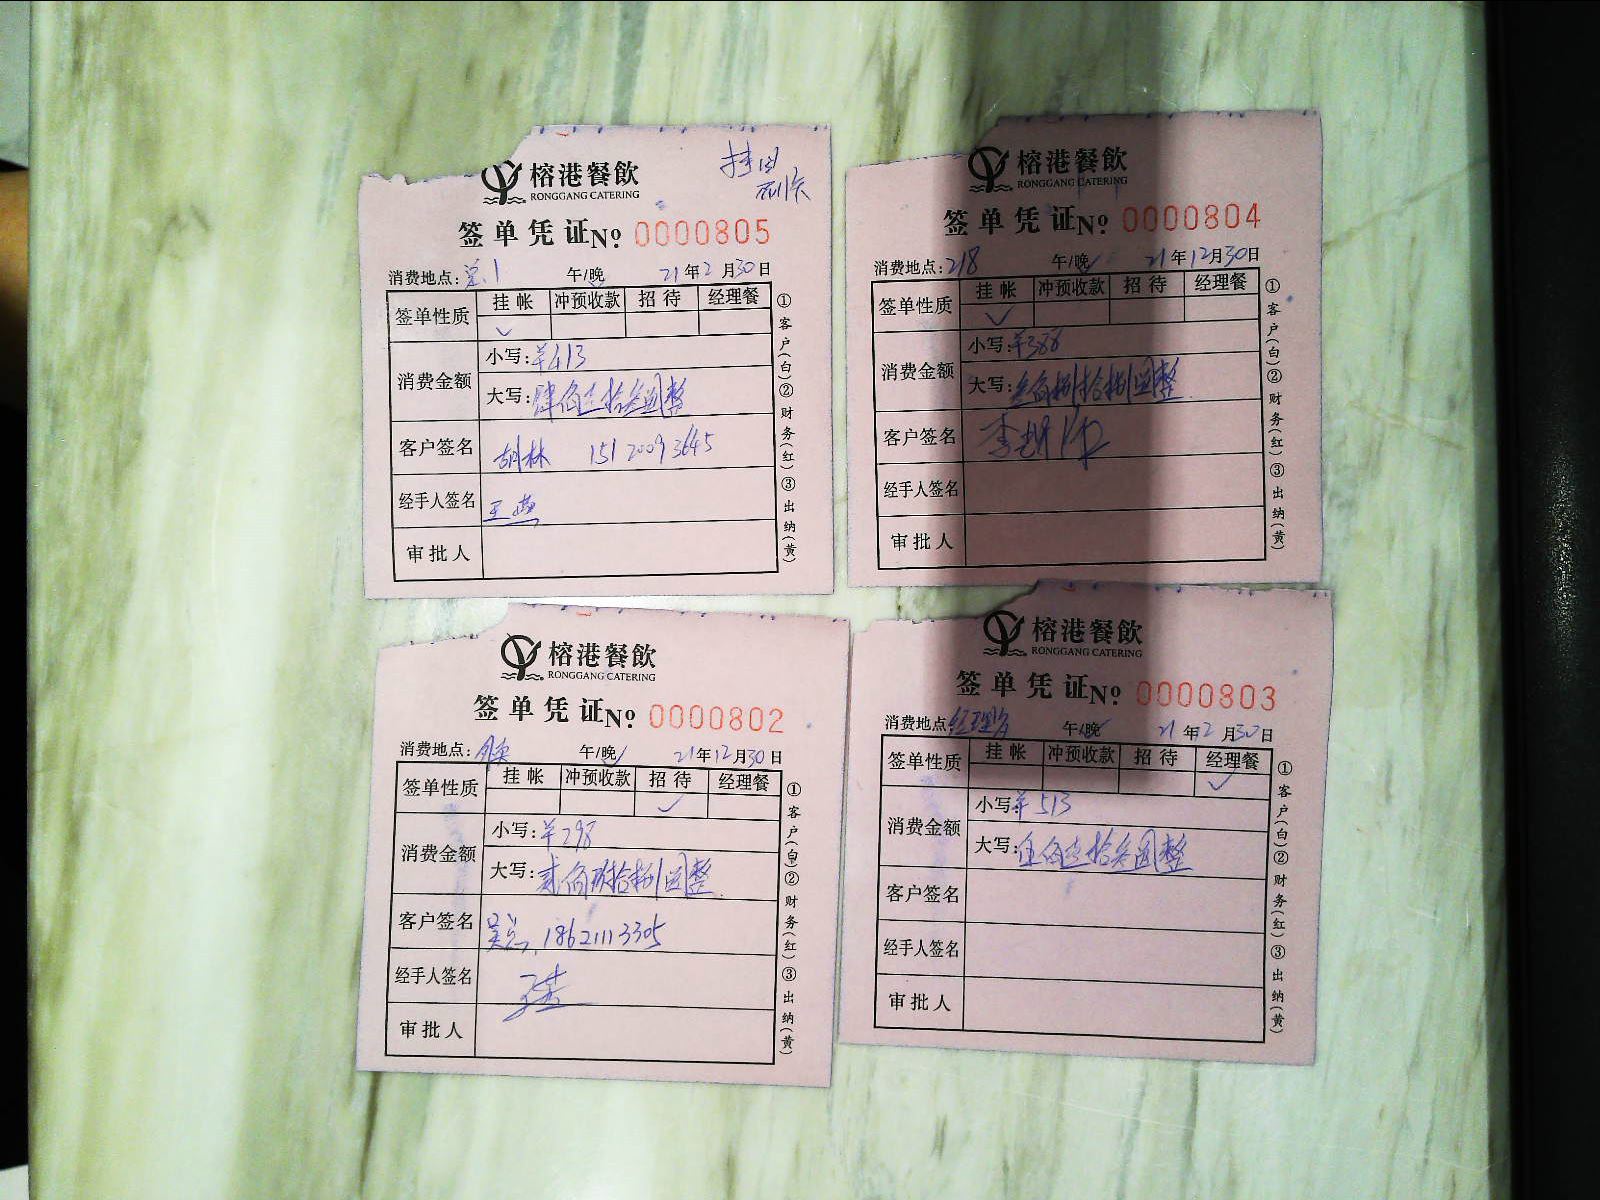 挂田
榕港餐飲
RONGGANG CATERING
签单凭证№ 0000805
消费地点: 总1 午/晚 21年2月30日
签单性质 挂帐 冲预收款 招待 经理餐
✓
消费金额 小写:¥413
大写:肆佰壹拾叁圆整
客户签名 胡林 15120093645
经手人签名 王燕
审批人
①客户(白)②财务(红)③出纳(黄)
榕港餐飲
RONGGANG CATERING
签单凭证№ 0000804
消费地点: 218 午/晚✓ 21年12月30日
签单性质 挂帐 冲预收款 招待 经理餐
✓
消费金额 小写:¥388
大写:叁佰捌拾捌圆整
客户签名 李
经手人签名
审批人
①客户(白)②财务(红)③出纳(黄)
榕港餐飲
RONGGANG CATERING
签单凭证№ 0000802
消费地点: 午/晚✓ 21年12月30日
签单性质 挂帐 冲预收款 招待 经理餐
✓
消费金额 小写:¥298
大写:贰佰玖拾捌圆整
客户签名 吴总 18621113305
经手人签名
审批人
①客户(白)②财务(红)③出纳(黄)
榕港餐飲
RONGGANG CATERING
签单凭证№ 0000803
消费地点: 经理房 午/晚✓ 21年2月30日
签单性质 挂帐 冲预收款 招待 经理餐
✓
消费金额 小写¥513
大写:伍佰壹拾叁圆整
客户签名
经手人签名
审批人
①客户(白)②财务(红)③出纳(黄)